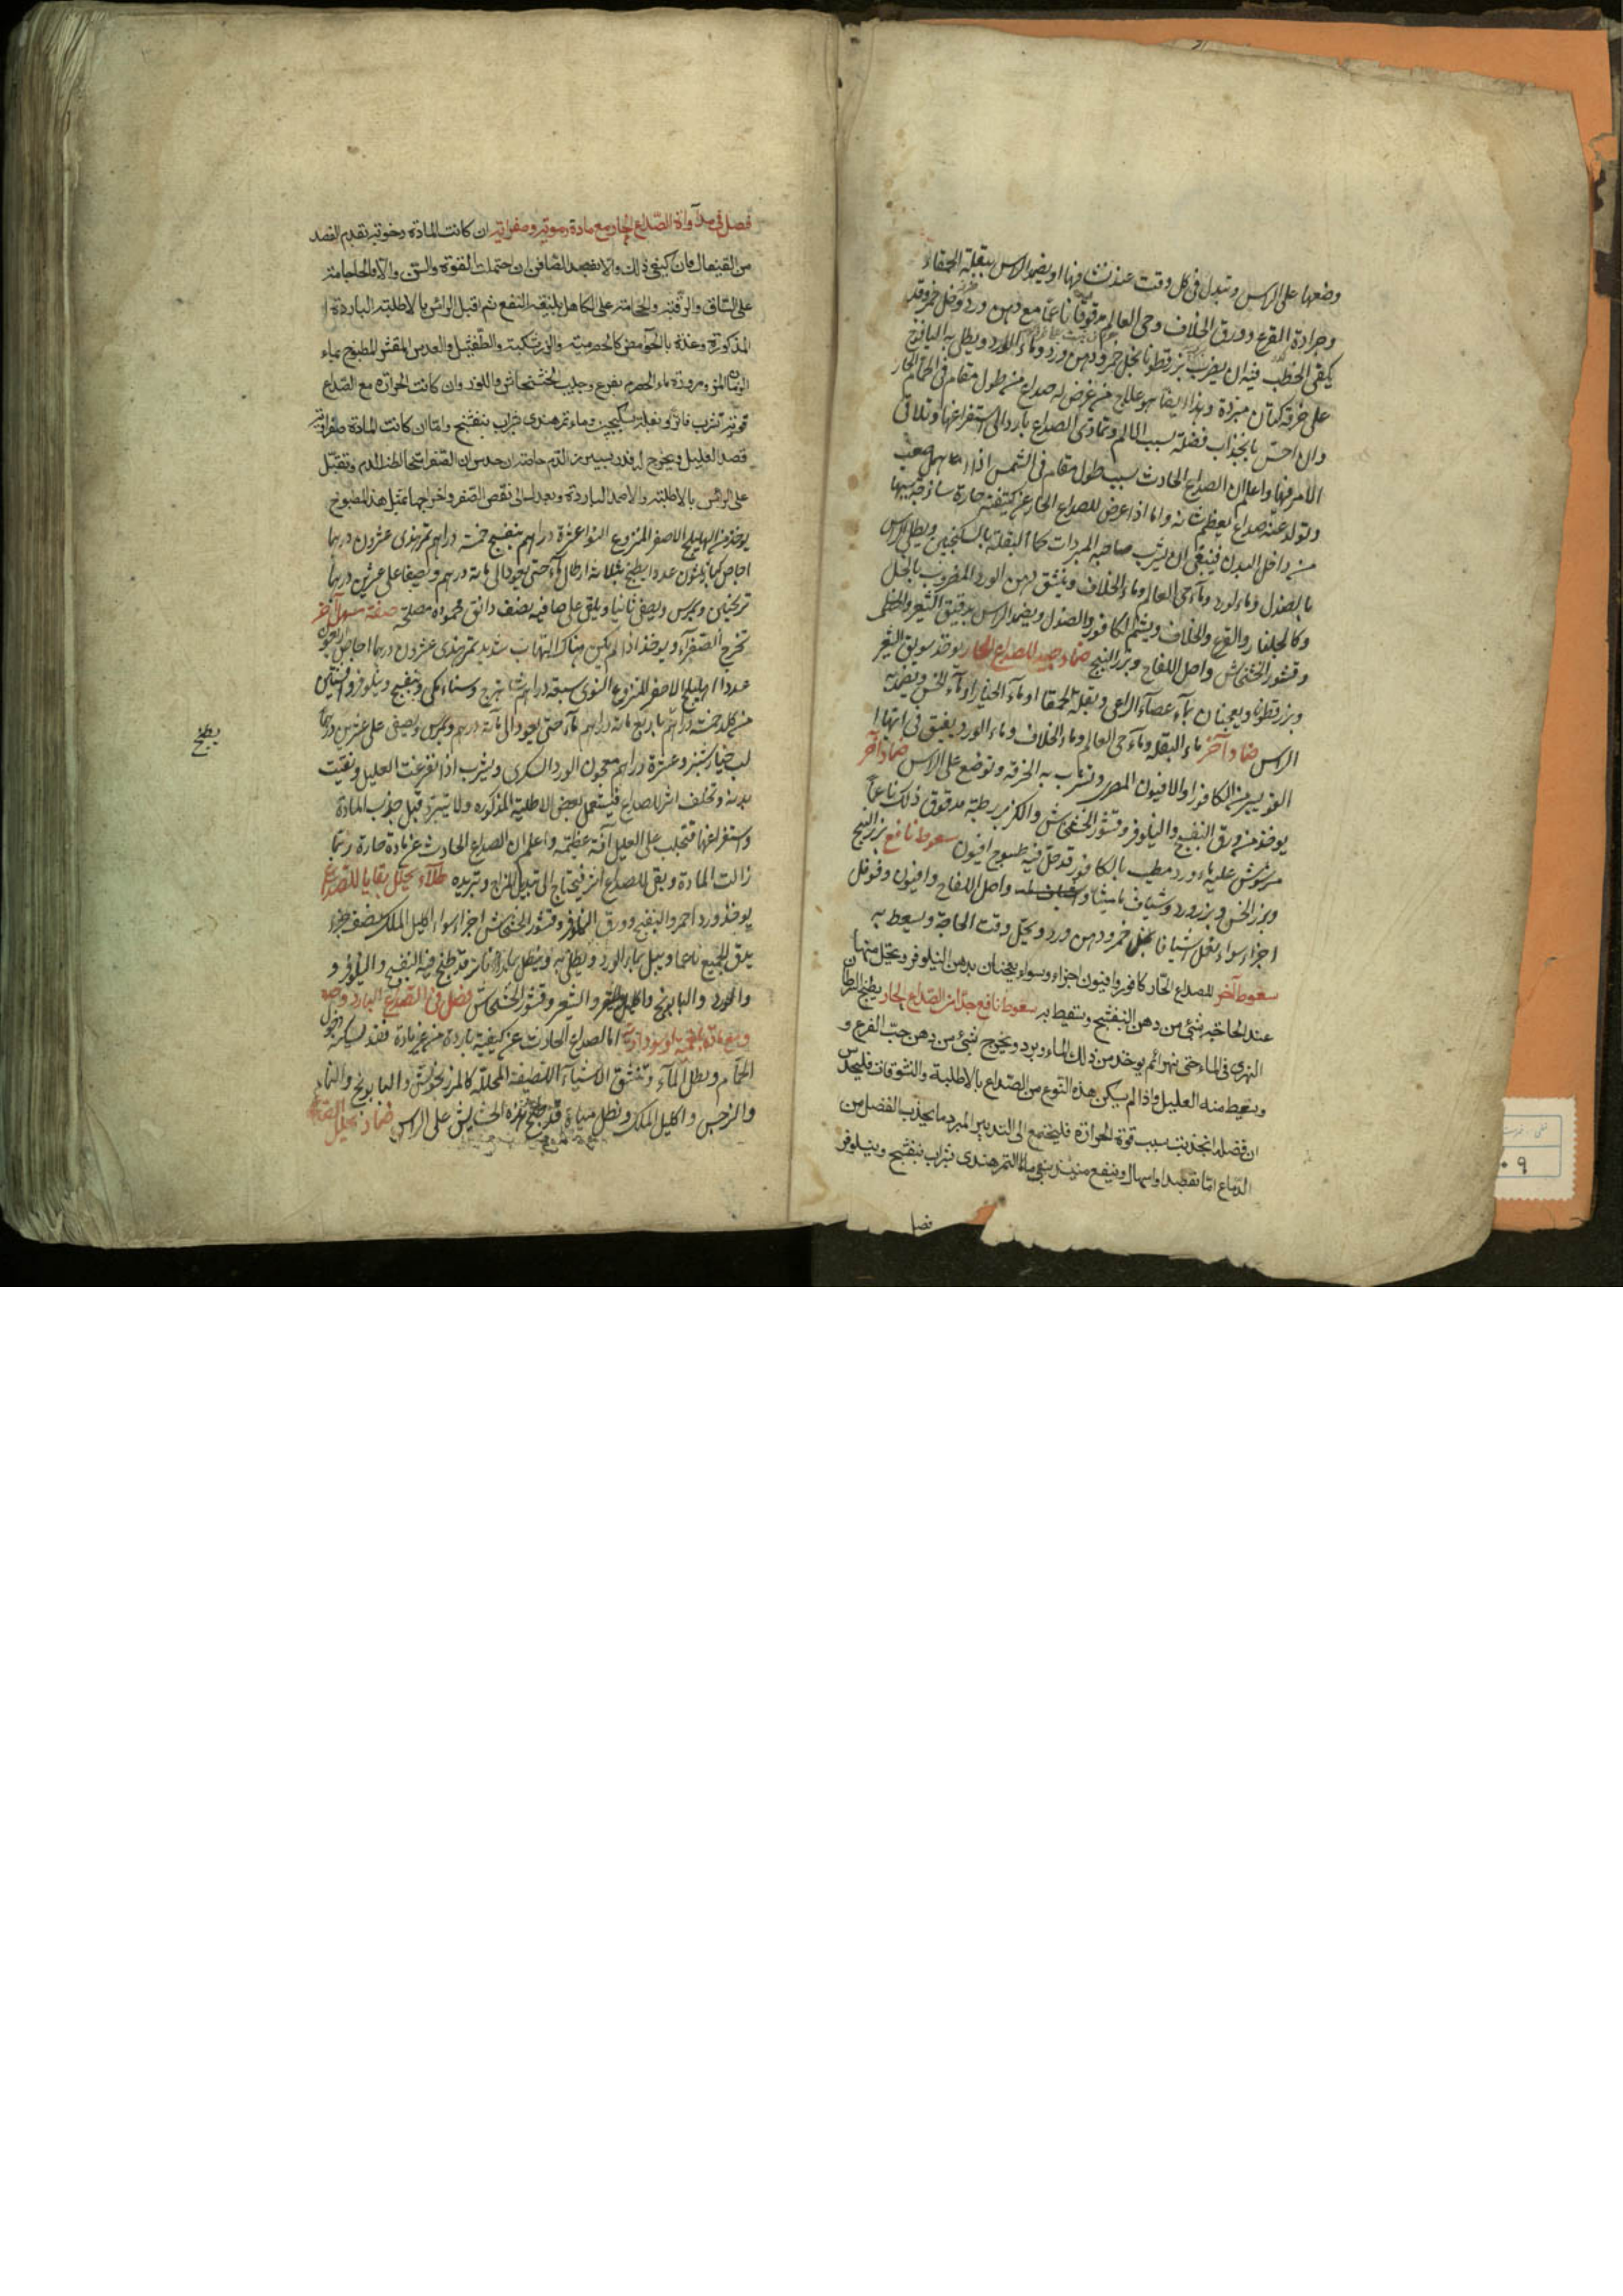 وضعها على الراس وتبدل فى كل وقت عند نشافها او يضمد الراس ببقلة الحمقاء
وجرادة القرع وورق الخلاف وحى العالم مدقوقا ناعما مع دهن ورد وخل خمر وقد
يكفى الخطب فيه ان يضرب بزرقطونا بخل خمر ودهن ورد وماء الورد ويطلى به اليافوخ
على خرقة كتان مبردة وهذا ايضا هو علاج من عرض له صداع من طول مقام فى الحمام الحار
وان احس بانجذاب فضلة بسبب الالم وتمادى الصداع بادر الى استفراغها وتلافى
الامر فيها واعلم ان الصداع الحادث بسبب طول مقام فى الشمس اذا اهمل صعب
وتولد عنه صداع يعظم واما اذا عرض الصداع الحار عن كيفية حارة ساذجة سببها
من داخل البدن فينبغى ان يشرب صاحبه المبردات كماء البقلة بالسكنجبين ويطلى الراس
بالصندل وماء الورد وماء حى العالم وماء الخلاف وينشق دهن الورد المضروب بالخل
وكالجلنار والقرع والخلاف ويشم الكافور والصندل ويضمد الراس بدقيق الشعير والخطمى
وقشور الخشخاش واصل اللفاح وبزر البنج ضماد جيد للصداع الحار يوخذ سويق الشعير
وبزرقطونا ويعجنان بماء عصا الراعى وبقلة الحمقا او ماء الخيار او ماء الخس ويضمد به
الراس ضماد آخر ماء البقلة وماء حى العالم وماء الخلاف وماء الورد يفتق فى ايها
اليسير من الكافور او الافيون المصرى وتشرب به الخرقة وتوضع على الراس ضماد آخر
يوخذ من ورق البنفسج والنيلوفر وقشور الخشخاش والكزبرة رطبة مدقوق ذلك ناعما
مرشوش عليه ماء ورد مطيب بالكافور قد حل فيه طسوج افيون سعوط نافع بزر البنج
وبزر الخس وبزر ورد وشياف ماميثا واصل اللفاح وافيون وفوفل
اجزاء سواء يعمل شيافا بخل خمر ودهن ورد ويحل وقت الحاجة ويسعط به
سعوط آخر للصداع الحار كافور وافيون اجزاء سواء يعجنان بدهن النيلوفر ويحل منها
عند الحاجة بشىء من دهن البنفسج ويسعط به سعوط نافع جدا من الصداع الحار يطبخ السرطان
النهرى فى الماء حتى يتهرا ثم يوخذ من ذلك الماء ويبرد ويمزج بشىء من دهن حب القرع و
ويسعط منه العليل واذا لم يسكن هذه النوع من الصداع بالاطلية والنشوقات فليحدس
ان فضلا انجذبت بسبب قوة الحرارة فليجتمع الى التدبير المبرد ما يجذب الفضل من
الدماغ اما بفصد او اسهال وينفع منه شربى ماء التمر هندى شراب بنفسج ونيلوفر
فصل
فصل فى مداواة الصداع الحار مع مادة دموية وصفراوية ان كانت المادة دموية تقدم الفصد
من القيفال فان كفى ذلك والا بفصد الصافن ان احتملت القوة والسن والا فالحجامة
على الساق والرقبة والحجامة على الكاهل بليغة النفع ثم يقبل الراس بالاطلية الباردة
المذكورة وغذه بالحوامض كالحصرمية والزرشكية والطفشيل والعدس المقشر المطبوخ بماء
الرمان المز ومزورة ماء الحصرم بقرع وحليب الخشخاش واللوز وان كانت الحرارة مع الصداع
قوية شرب بسكنجبين وماء تمرهندى شراب بنفسج واما ان كانت المادة صفراوية
فصد العليل ويخرج له قدر يسير من الدم خاصة ان حدس ان الصفرا تخالط الدم وتقبل
على الراس بالاطلية والاضمدة الباردة وبعد ذلك الى نقص الصفرا واخراجها بمثل هذا المطبوخ
يوخذ من الهليلج الاصفر المنزوع النوا عشرة دراهم بنفسج خمسة دراهم تمرهندى عشرون درهما
اجاص كبار ثلثون عددا يطبخ بثلاثة ارطال ماء حتى يعود الى مائة درهم ويصفا على عشرين درهما
ترنجبين ويمرس ويصفى ثانيا ويلقى على صافيه نصف دانق محمودة مصلحة صفة مسهل آخر
تخرج الصفراء ويوخذ اذا لم يكن هناك التهاب شديد تمرهندى عشرون درهما اجاص اربعون
عددا اهليلج الاصفر المنزوع النوى سبعة دراهم شاهترج وسناء مكى وبنفسج ونيلوفر وافسنتين
من كل خمسة دراهم باربع مائة دراهم ماء حتى يعود الى مائة درهم ويمرس ويصفى على عشرين درهما
لب خيارشنبر وعشرة دراهم معجون الورد السكرى ويشرب اذا تفرغت العليل ونقيت
بدنه وتخلف اثر الصداع فيستعمل بعض الاطلية المذكورة ولا تبرد قبل جذب المادة
واستفراغها فتجلب على العليل آفة عظيمة واعلم ان الصداع الحادث عن مادة حارة ربما
زالت المادة وبقى للصداع اثر فيحتاج الى تبديل المزاج وتبريده طلاء يحلل بقايا للصداع
يوخذ ورد احمر والبنفسج وورق النيلوفر وقشور الخشخاش اجزاء سواء اكليل الملك نصف جزء
يدق الجميع ناعما ويبل بماء الورد ويطلى به وينطل بماء فاتر قد طبخ فيه البنفسج والنيلوفر و
والورد والبابونج والشعير وقشور الخشخاش فصل فى الصداع البارد وحده
ومع مادة بلغمية او سوداوية اما الصداع الحادث عن كيفية باردة من غير مادة فقد يسكنه دخول
الحمام وبطل الماء وتنشق الاشياء اللطيفة المحللة كالمرزنجوش والبابونج والنمام
والنرجس واكليل الملك ونطل مياه قد طبخ بهذه الحشايش على الراس ضماد يحلل الصداع
يطبخ